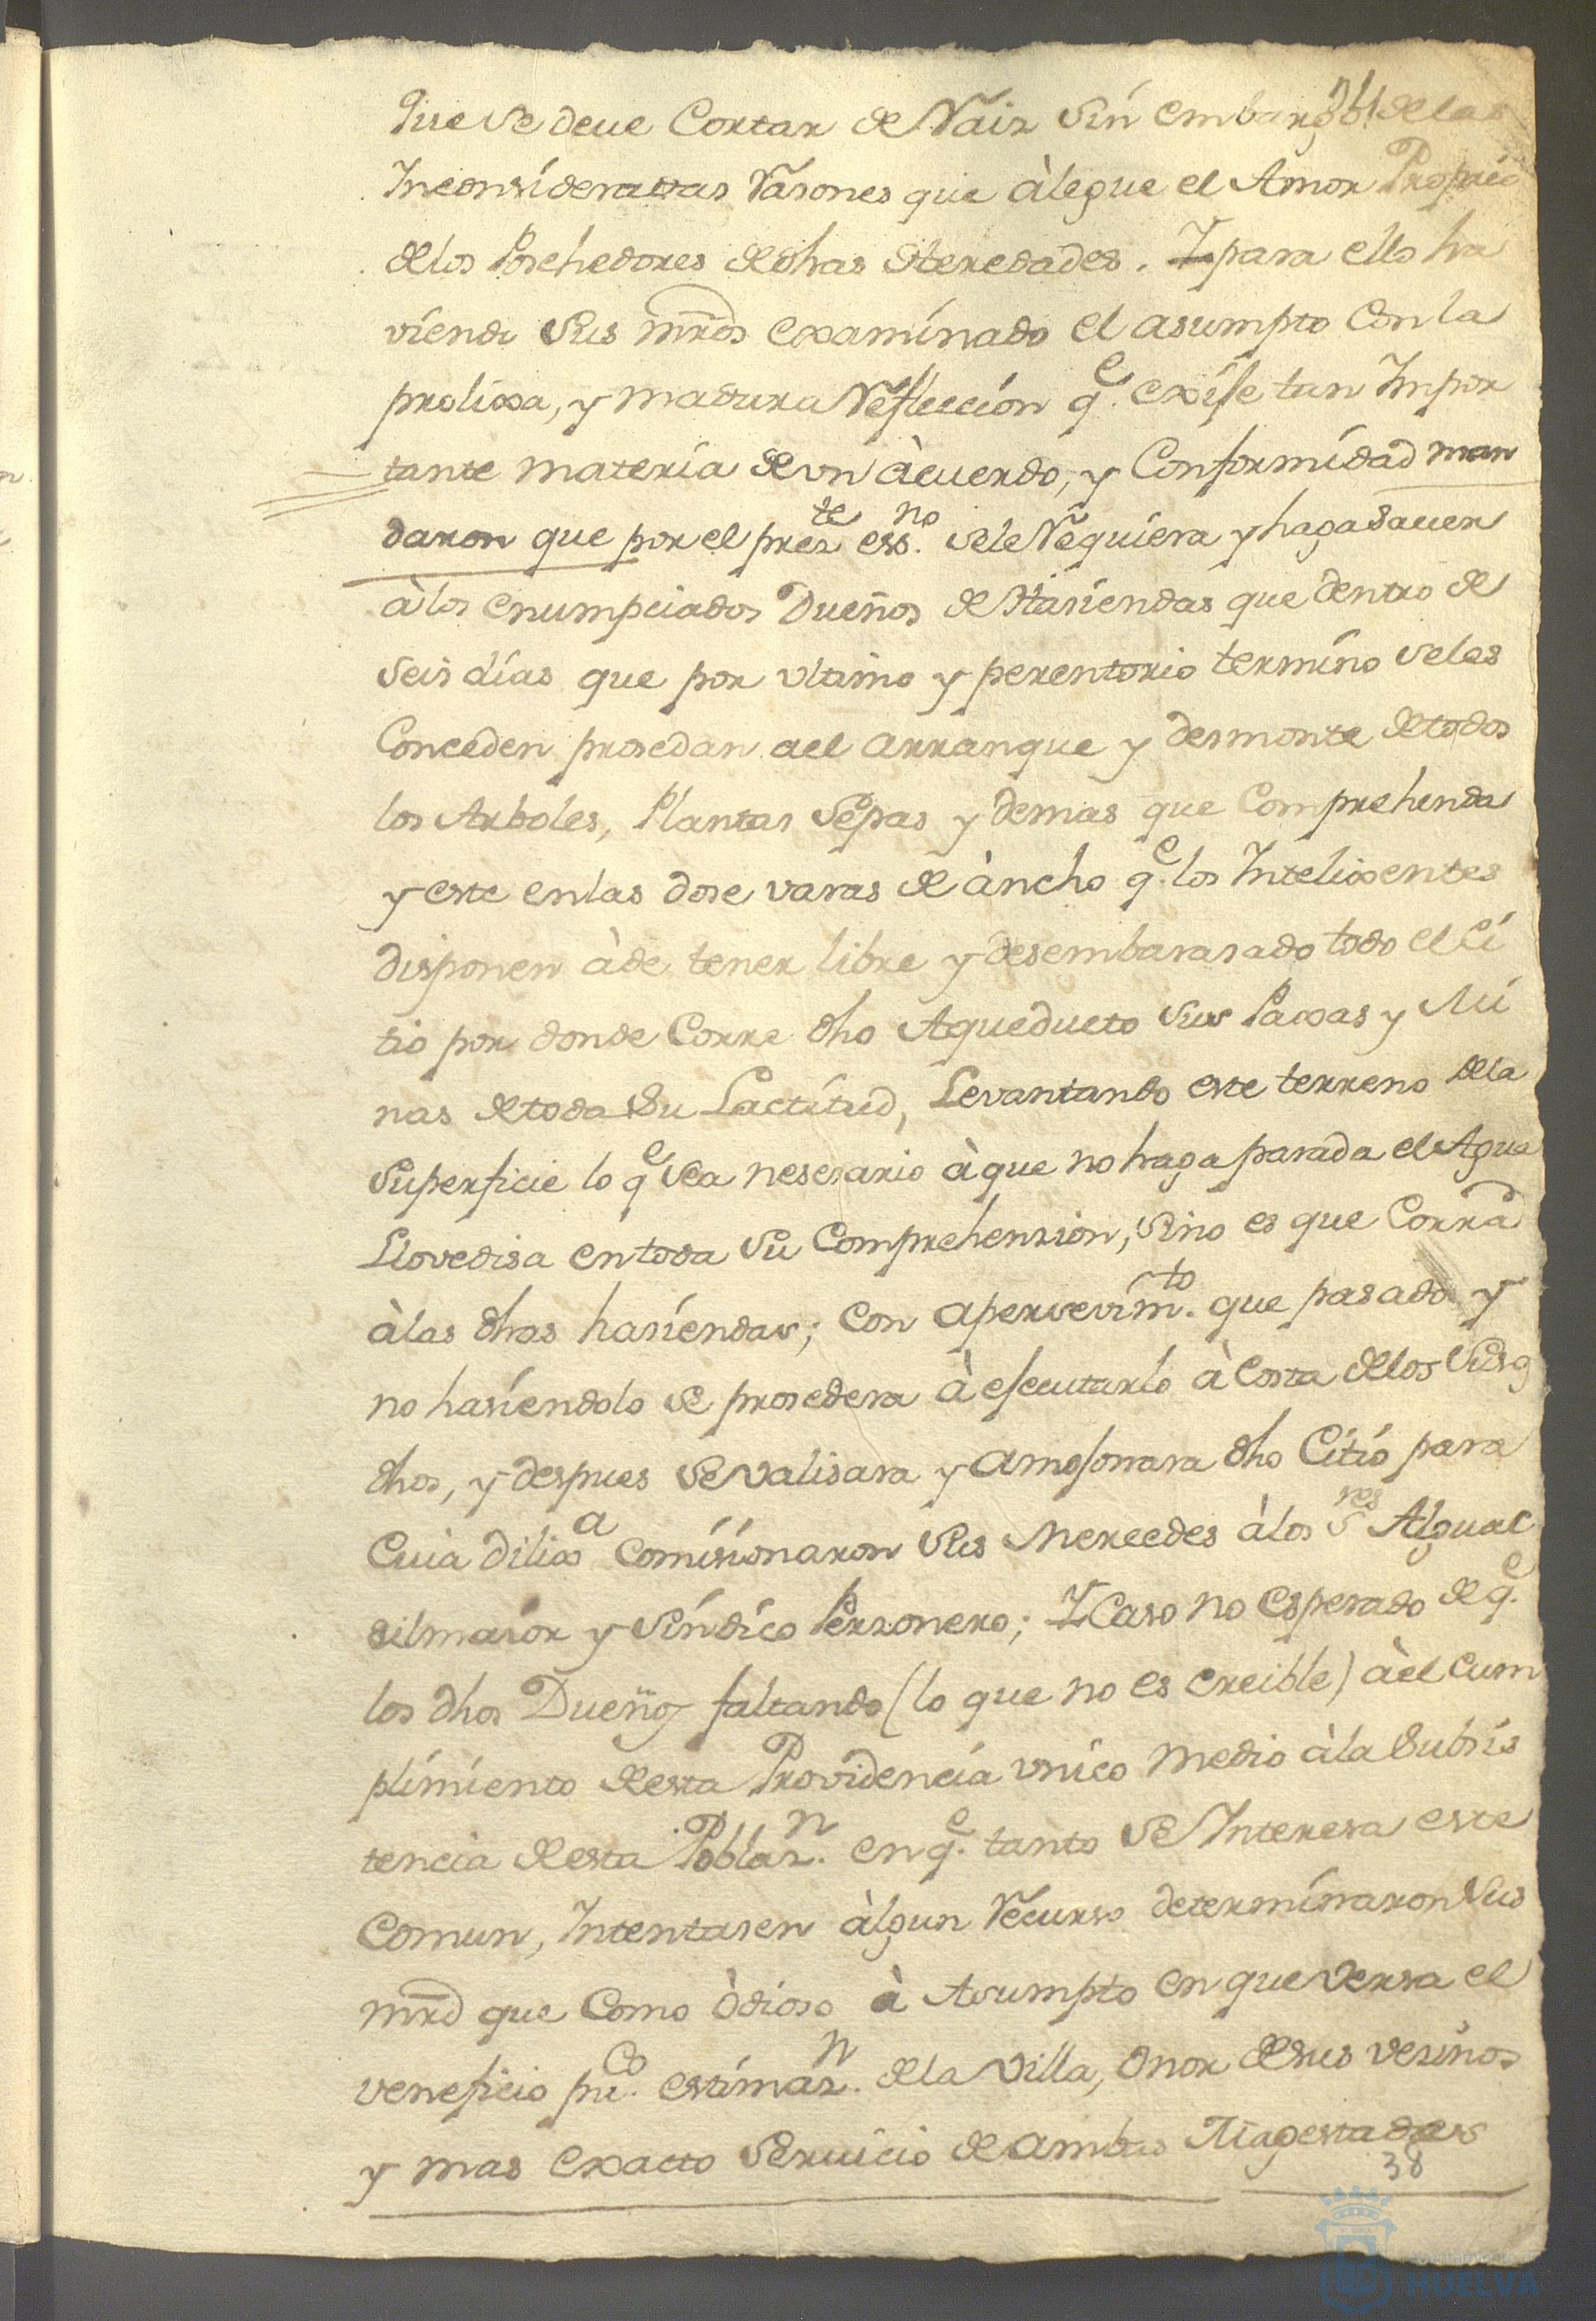 Que se deve Cortar de Raiz sin embargo 31 de las
Inconsideradas Rasones que àlegue el Amor Proprio
de los Poschedores de dhas Heredades. Y para ello ha
viendo sus mrds examinado el asumpto Con la
prolixa, y madura Reflección q.e exije tan Impor
tante materia de vn àcuerdo, y Conformidad man
daron que por el prez.te ess.no se le Requiera y haga saver
à los enumpciados Dueños de Hasiendas que dentro de
seis días que por vltimo y perentorio termino se les
Conceden prosedan ael arranque y desmonte de todos
los Arboles, Plantas Sepas y demas que Comprehenda
y este en las dose varas de àncho q.e los Intelixentes
disponen àde tener libre y desembarasado todo el Ci
tio por donde Corre dho Aqueducto sus Paxas y Mi
nas de toda su Lactitud, Levantando este terreno de la
superficie lo q.e sea nesesario à que no haga parada el Agua
Llovedisa en toda su Comprehension, sino es que Corra
à las dhas hasiendas; Con apersevim.to que pasado y
no hasiendolo se prosedera à esecutarlo à Costa de los suso
dhos, y despues se valisara y amojonara dho Citio para
Cuia dilix.a Comisionaron sus Mercedes à los S.res Alguac
sil maior y Síndico Perzonero; Y Caso no esperado de q.e
los dhos Dueños faltando (lo que no es creible) àel Cum
plimiento de esta Providencia vnico medio à la Subsis
tencia de esta Poblaz.n en q.e tanto se Interesa este
Comun, Intentasen àlgun Recurso determinaron sus
mrd que Como òdioso à Asumpto en que versa el
veneficio pu.co estimaz.n de la Villa, Onor de sus vesinos
y mas exacto servicio de ambas Magestades
38
Ayuntamiento
HUELVA